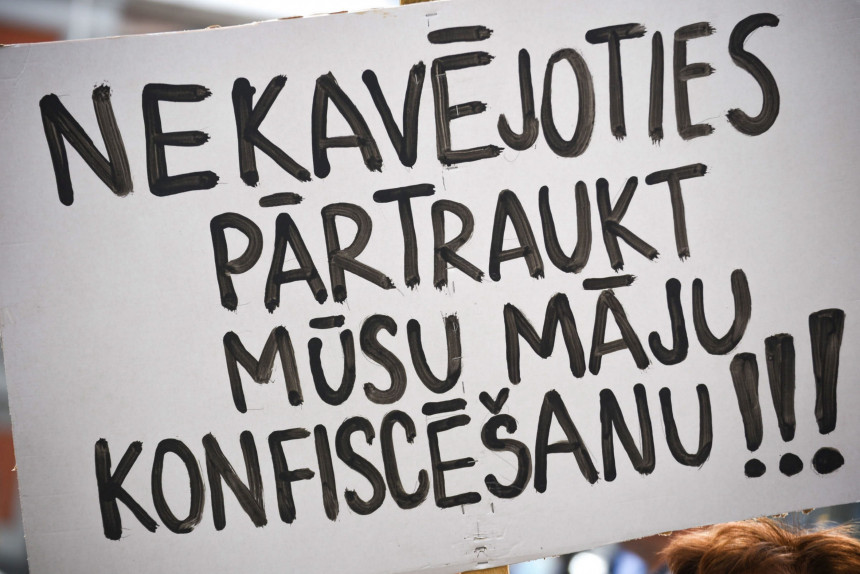 NEKAVĒJOTIES
PĀRTRAUKT
MŪSU MĀJU
KONFISCĒŠANU!!!